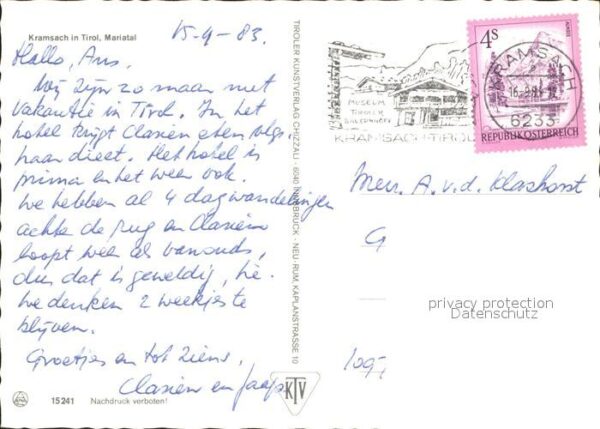 Kramsach in Tirol, Mariatal
15-9-83.
Hallo, Ans.
Wij zijn zo maar met
vakantie in Tirol. In het
hotel krijgt Clasien eten volgens
haar dieet. Het hotel is
prima en het weer ook.
We hebben al 4 dagwandelingen
achter de rug en Clasien
loopt weer als vanouds,
dus dat is geweldig, hè.
We denken 2 weekjes te
blijven.
Groetjes en tot ziens,
Clasien en Jaap
15241 Nachdruck verboten!
TIROLER KUNSTVERLAG CHIZZALI · 6040 INNSBRUCK - NEU-RUM KAPLANSTRASSE 10
KTV
MUSEUM
TIROLER
BAUERNHÖFE
KRAMSACH-TIROL
4 S
REPUBLIK ÖSTERREICH
KRAMSACH
6233
Mevr. A. v.d. Klashorst
G
privacy protection
Datenschutz